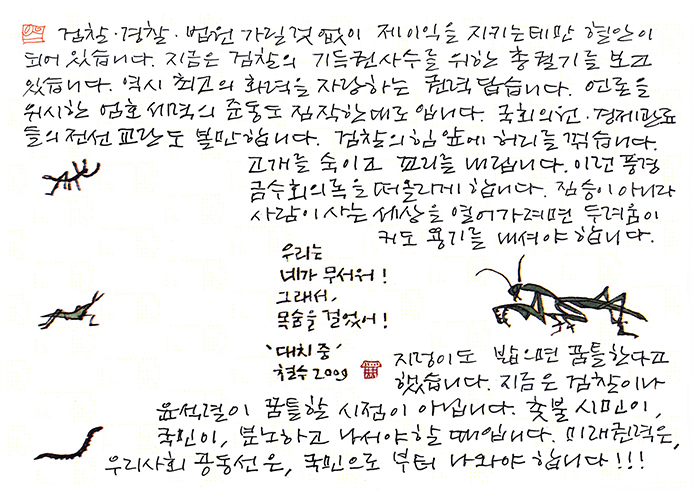 검찰·경찰·법원 가릴것 없이 제 이익을 지키는데만 혈안이
되어 있습니다. 지금은 검찰의 기득권사수를 위한 총궐기를 보고
있습니다. 역시 최고의 화력을 자랑하는 권력 답습니다. 언론을
위시한 엄호세력의 준동도 짐작한대로 입니다. 국회의원·경제관료
들의 전선 교란도 볼만합니다. 검찰의 힘 앞에 허리를 꺾습니다.
고개를 숙이고 꼬리를 내립니다. 이런 풍경
금수회의록을 떠올리게 합니다. 짐승이 아니라
사람이 사는 세상을 열어가려면 두려움이
커도 용기를 내셔야 합니다.
우리는
네가 무서워!
그래서,
목숨을 걸었어!
'대치 중'
철수 2009
지렁이도 밟으면 꿈틀한다고
했습니다. 지금은 검찰이나
윤석열이 꿈틀할 시점이 아닙니다. 촛불 시민이,
국민이, 분노하고 나서야 할 때입니다. 미래권력은,
우리사회 공동선은, 국민으로 부터 나와야 합니다!!!